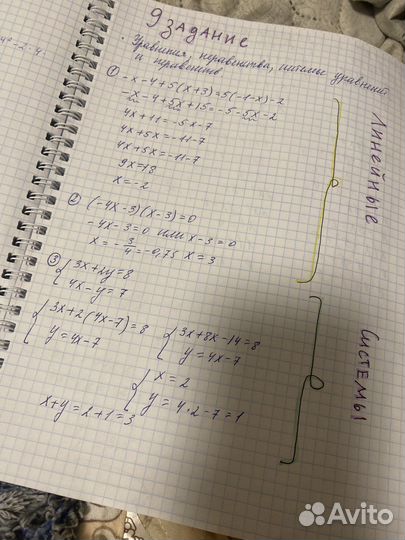 9 ЗАДАНИЕ
• Уравнения, неравенства, системы уравнений
и неравенств
① -x-4+5(x+3)=5(-1-x)-2
-x-4+5x+15=-5-5x-2
4x+11=-5x-7
4x+5x=-11-7
4x+5x=-11-7
9x=18
x=-2
② (-4x-3)(x-3)=0
-4x-3=0 или x-3=0
x=-3/4=-0,75 x=3
③ { 3x+2y=8
4x-y=7
{ 3x+2(4x-7)=8
y=4x-7
{ 3x+8x-14=8
y=4x-7
{ x=2
y=4·2-7=1
x+y=2+1=3
ЛИНЕЙНЫЕ
СИСТЕМЫ
Avito